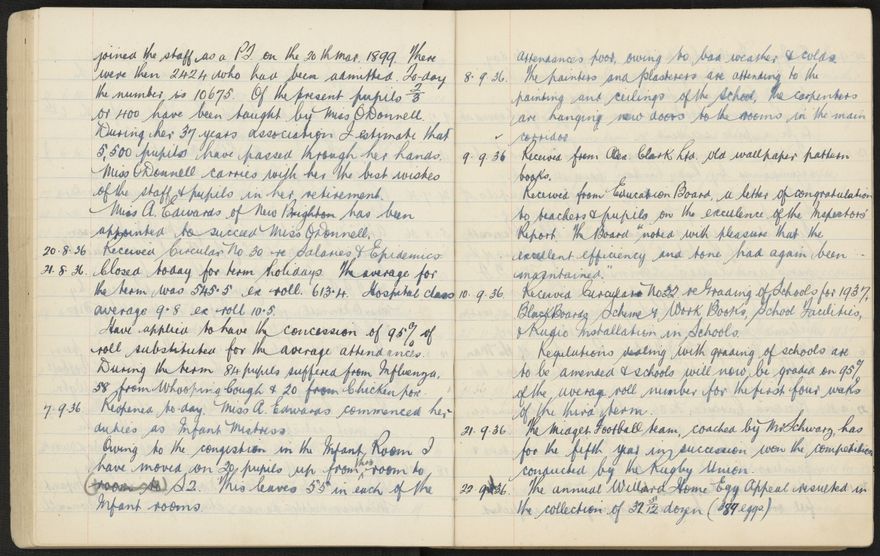 joined the staff as a P.T. on the 20th Mar. 1899. There
were then 2424 who had been admitted. To-day
the number is 10675. Of the present pupils 2/3
or 400 have been taught by Miss O'Donnell.
During her 37 years association I estimate that
5,500 pupils have passed through her hands.
Miss O'Donnell carries with her the best wishes
of the staff & pupils in her retirement.
Miss A. Edwards of New Brighton has been
appointed to succeed Miss O'Donnell.
20.8.36 Received Circular No 30 re Salaries & Epidemics
21.8.36. Closed today for term holidays. The average for
the term was 545.5 ex roll. 613.4. Hospital class
average 9.8 ex roll 10.5.
Have applied to have the concession of 95% of
roll substituted for the average attendances.
During the term 84 pupils suffered from Influenza,
58 from Whooping Cough & 20 from Chicken pox.
7.9.36 Reopened to-day. Miss A. Edwards commenced her
duties as Infant Mistress.
Owing to the congestion in the Infant Room I
have moved on 20 pupils up from this room to
S2. This leaves 55 in each of the
Infant rooms.
attendances poor, owing to bad weather & colds.
8.9.36. The painters and plasterers are attending to the
painting and ceilings of the School, the carpenters
are hanging new doors to the rooms in the main
corridor
9.9.36 Received from Clark Ltd, old wallpaper pattern
books.
Received from Education Board, a letter of congratulation
to teachers & pupils on the excellence of the Inspectors'
Report. The Board "noted with pleasure that the
excellent efficiency and tone had again been
maintained."
10.9.36. Received Circulars No 32 re Grading of Schools for 1937,
BlackBoards, Scheme & Work Books, School Facilities,
& Radio Installation in Schools.
Regulations dealing with grading of schools are
to be amended & schools will now be graded on 95%
of the average roll number for the first four weeks
of the third term.
21.9.36 The Midget Football team, coached by Mr Schwarz, has
for the fifth year in succession won the competition
conducted by the Rugby Union.
22 9 36. The annual Willard Home Egg Appeal resulted in
the collection of 32 dozen ( eggs)